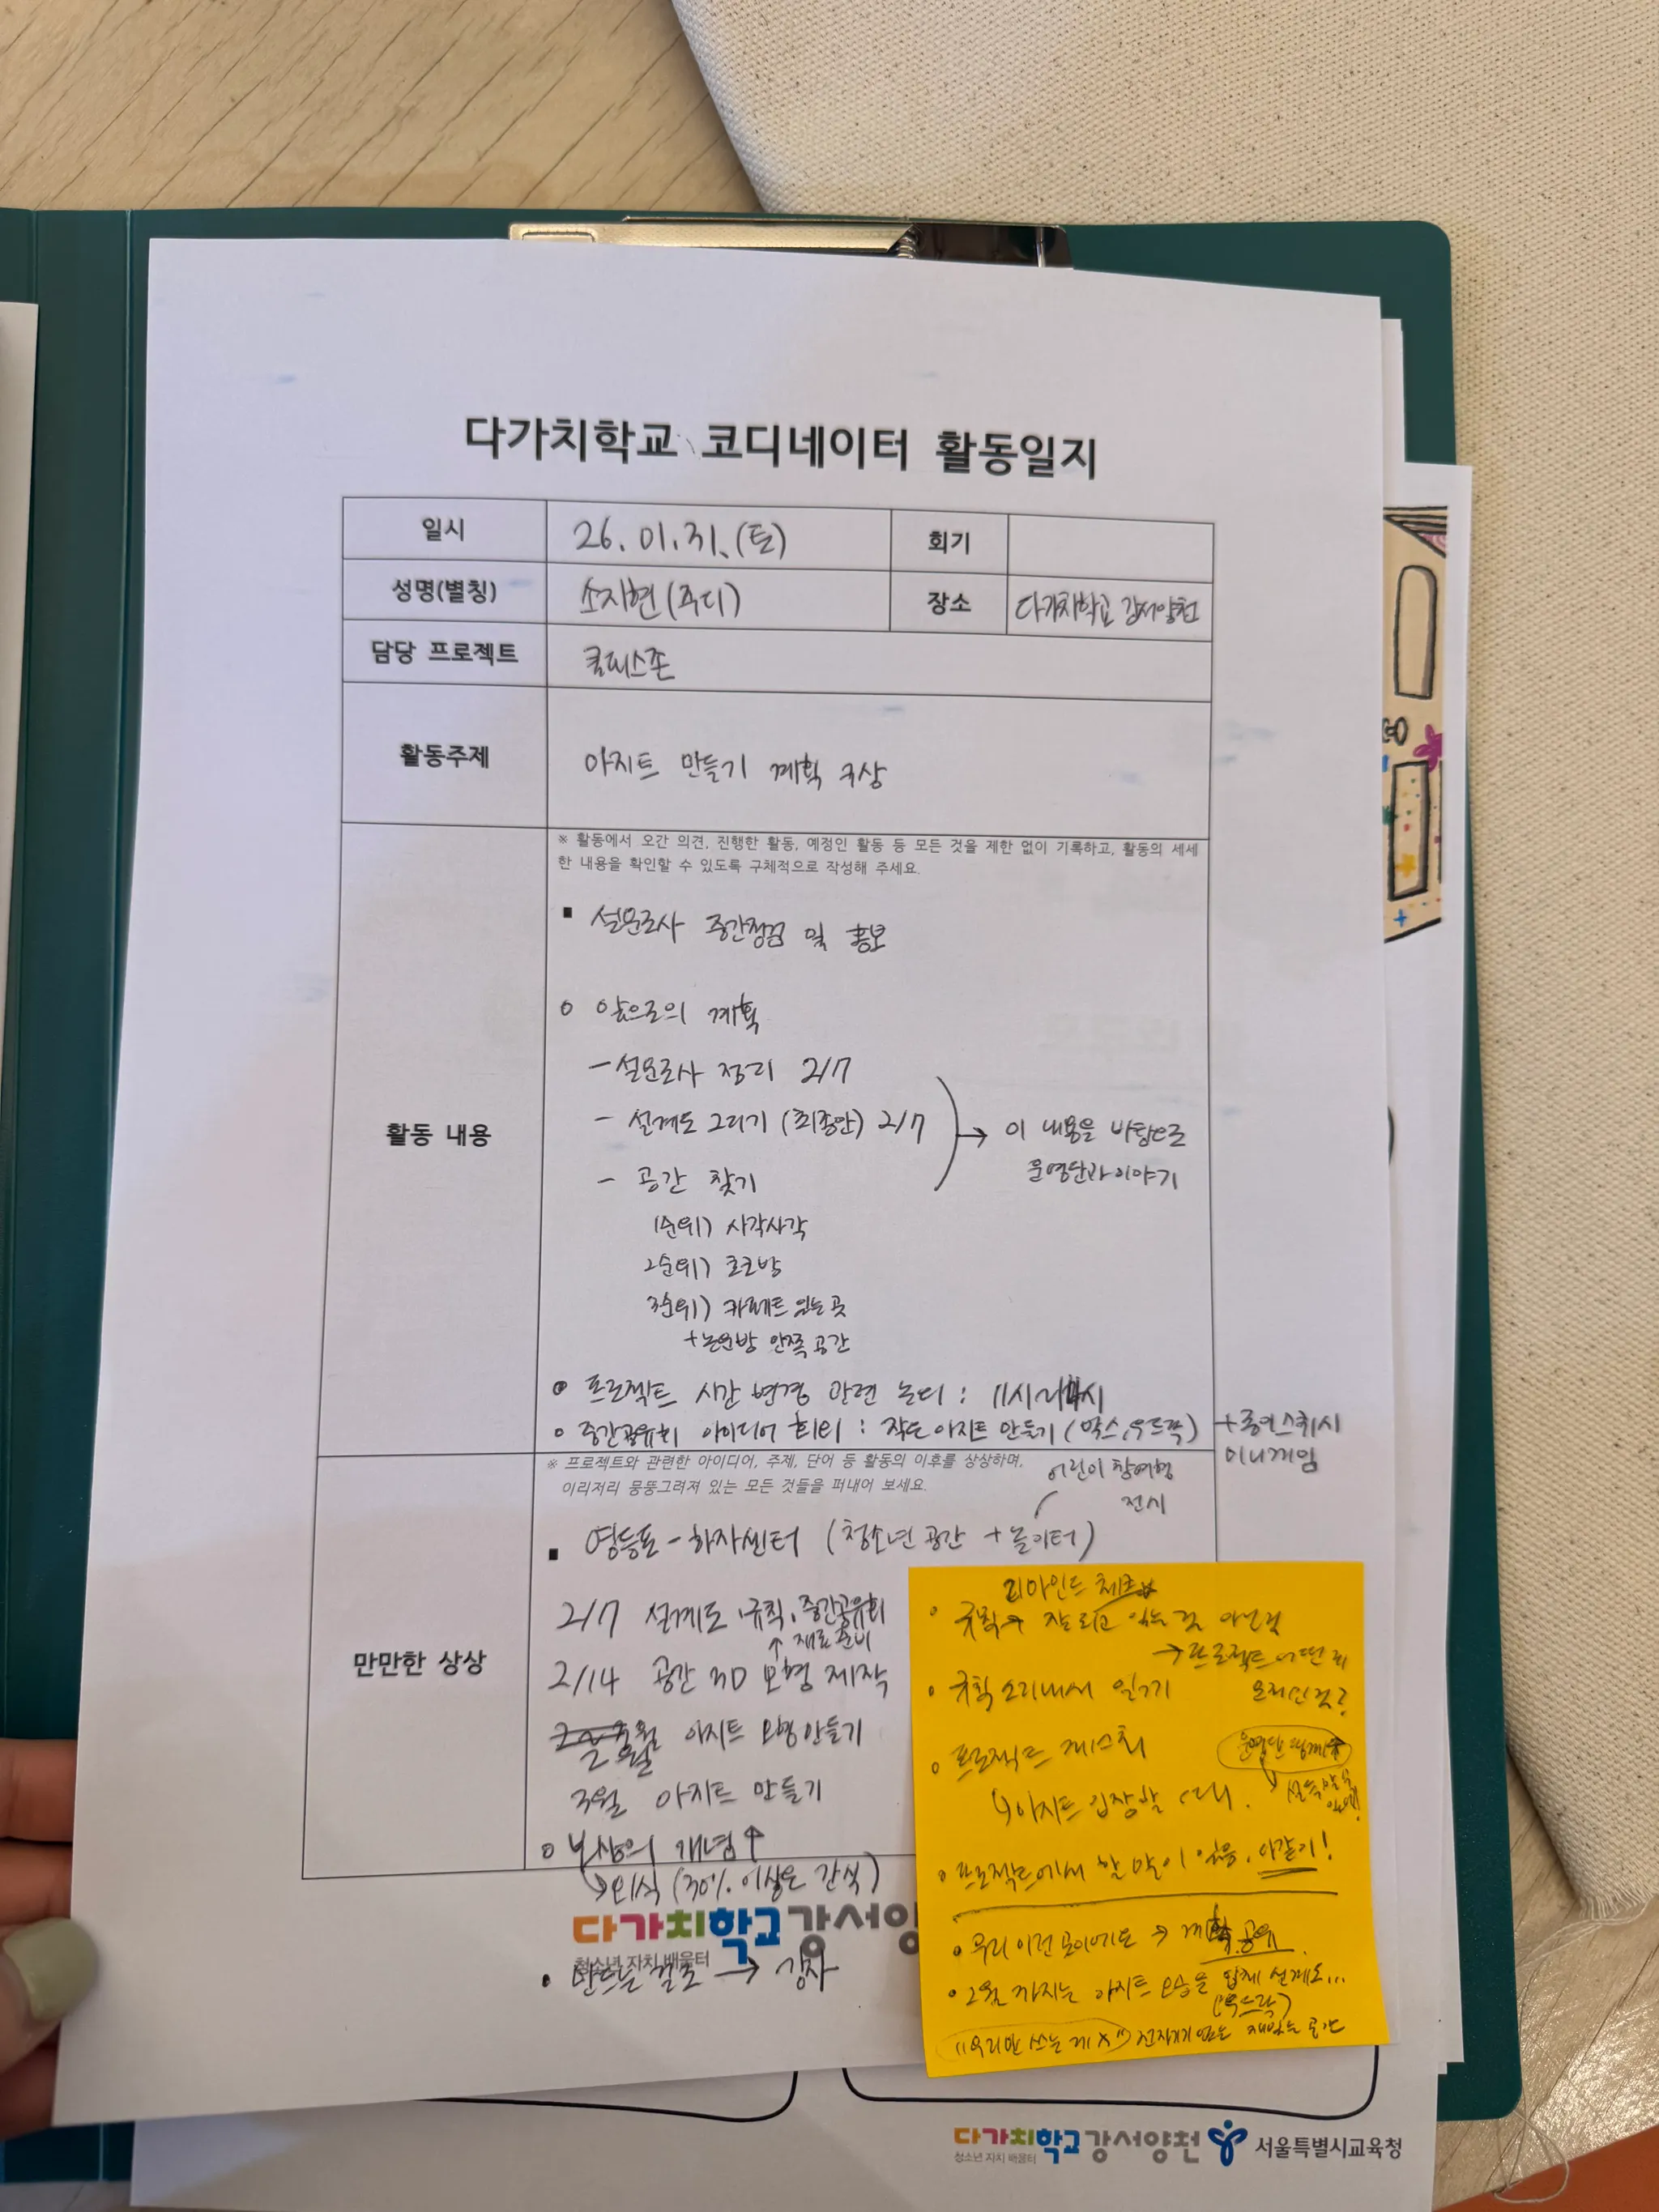 다가치학교 코디네이터 활동일지
일시 26.01.31.(토) 회기
성명(별칭) 소지현(쥬디) 장소 다가치학교 강서양천
담당 프로젝트
활동주제 아지트 만들기 계획 구상
※ 활동에서 오간 의견, 진행한 활동, 예정인 활동 등 모든 것을 제한 없이 기록하고, 활동의 세세
한 내용을 확인할 수 있도록 구체적으로 작성해 주세요.
활동 내용
▪ 설문조사 중간점검 및 홍보
o 앞으로의 계획
- 설문조사 정리 2/7
- 설계도 그리기 (최종안) 2/7 → 이 내용을 바탕으로
운영단과 이야기
- 공간 찾기
1순위) 사각사각
2순위) 코코방
3순위) 카페트 있는 곳
+ 안쪽 공간
o 프로젝트 시간 변경 관련 논의 : 11시
o 중간공유회 아이디어 회의 : 작은 아지트 만들기 (박스, 우드락) + 종이스퀴시
미니게임
※ 프로젝트와 관련한 아이디어, 주제, 단어 등 활동의 이후를 상상하며,
이리저리 뭉뚱그려져 있는 모든 것들을 퍼내어 보세요.
어린이 참여형
전시
만만한 상상
▪ 영등포 - 하자센터 (청소년 공간 + 놀이터)
2/7 설계도, 규칙, 중간공유회
↑ 재료 준비
2/14 공간 3D 모형 제작
2월 아지트 모형 만들기
3월 아지트 만들기
o 보상의 개념 ↑
→ 외식 (30% 이상은 간식)
다가치학교강서양
청소년 자치 배움터
• 만드는 걸로 → 강자
리마인드 체크
• 규칙 → 잘 되고 있는 것 아닌 것
→ 프로젝트
• 규칙 소리내서 읽기
• 프로젝트 제스처
↳ 아지트 입장할 때.
• 프로젝트에서 할 말이 있음.
• 우리 이런 곳이에요 → 계획 공유
• 2월 까지는 아지트 모습을 입체 설계도...
(우드락)
"우리만 쓰는 게 X" 전자기기 없는 재밌는 공간
다가치학교강서양천 서울특별시교육청
청소년 자치 배움터